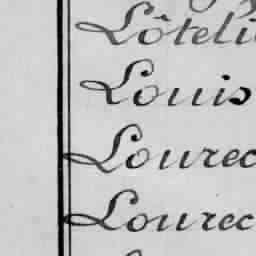 Lôteli
Louis
Lourec
Lourec